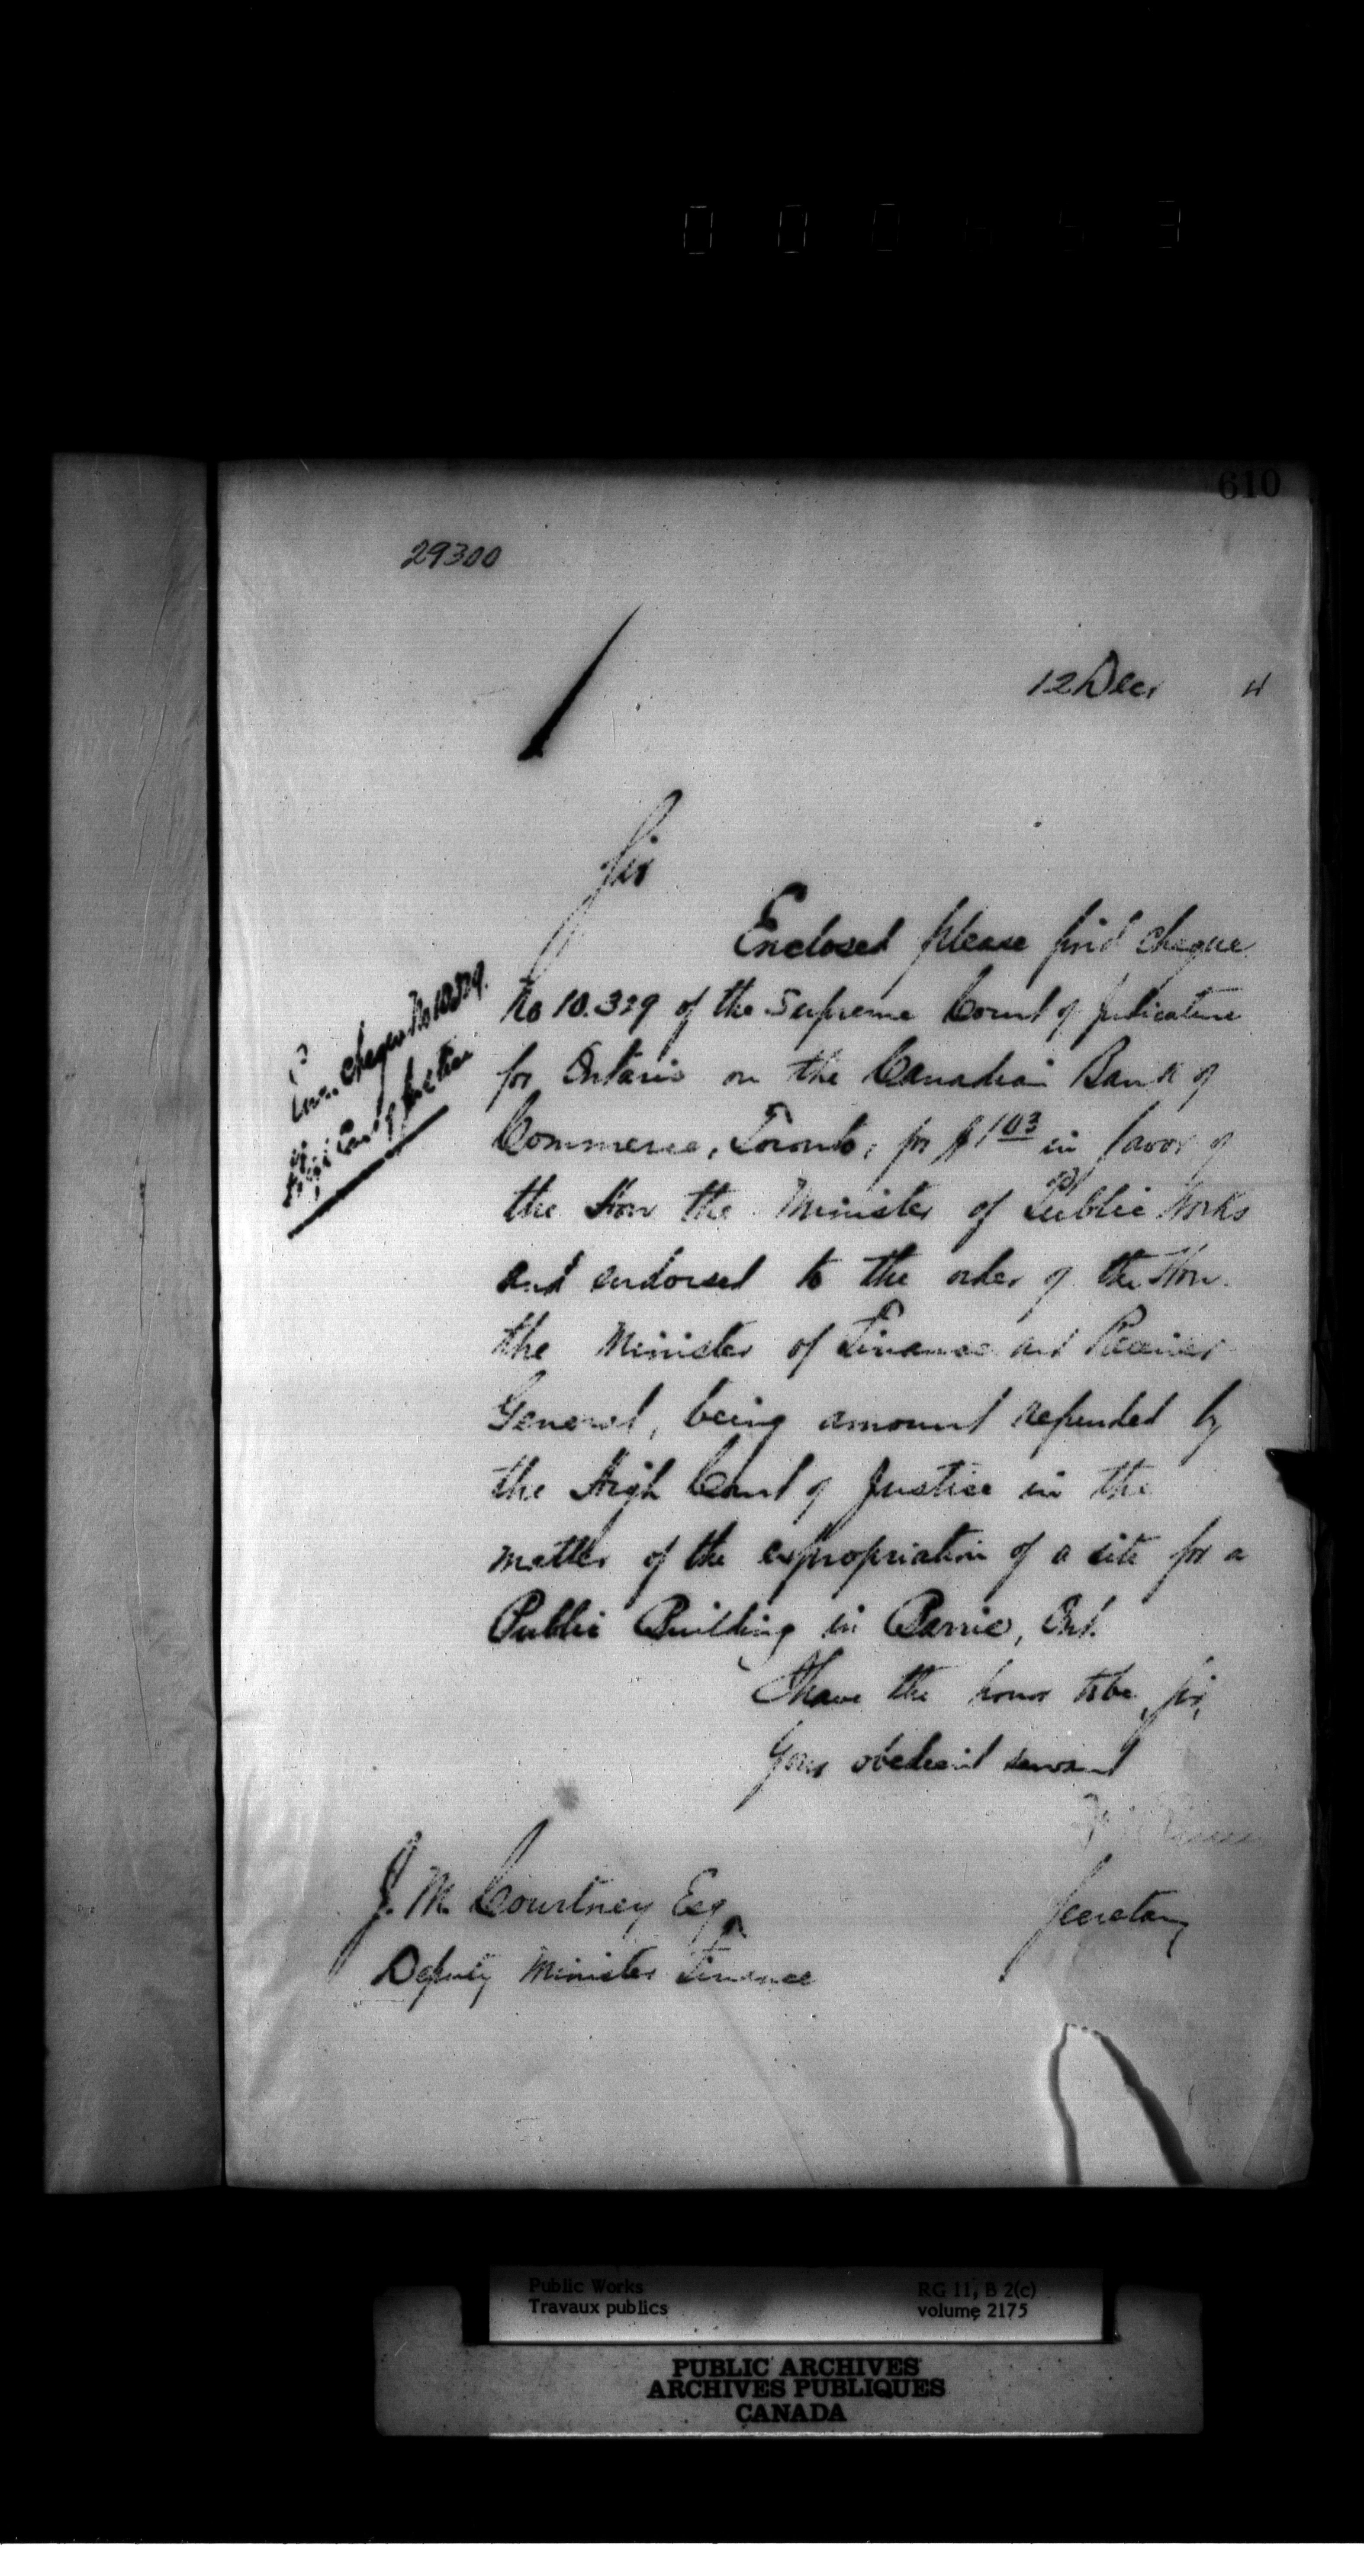 610
29300
12 Decr 4
Sir
Enclosed please find cheque
No 10.329 of the Supreme Court of Judicature
for Ontario on the Canadian Bank of
Commerce, Toronto, for $1 03 in favor of
the Hon the Minister of Public Works
and endorsed to the order of the Hon.
the Minister of Finance and Receiver
General, being amount refunded by
the High Court of Justice in the
matter of the expropriation of a site for a
Public Building in Barrie, Ont.
I have the honor to be, Sir,
Your obedient servant
Secretary
J. M. Courtney Esq
Deputy Minister Finance
Public Works
Travaux publics
RG 11, B 2(c)
volume 2175
PUBLIC ARCHIVES
ARCHIVES PUBLIQUES
CANADA